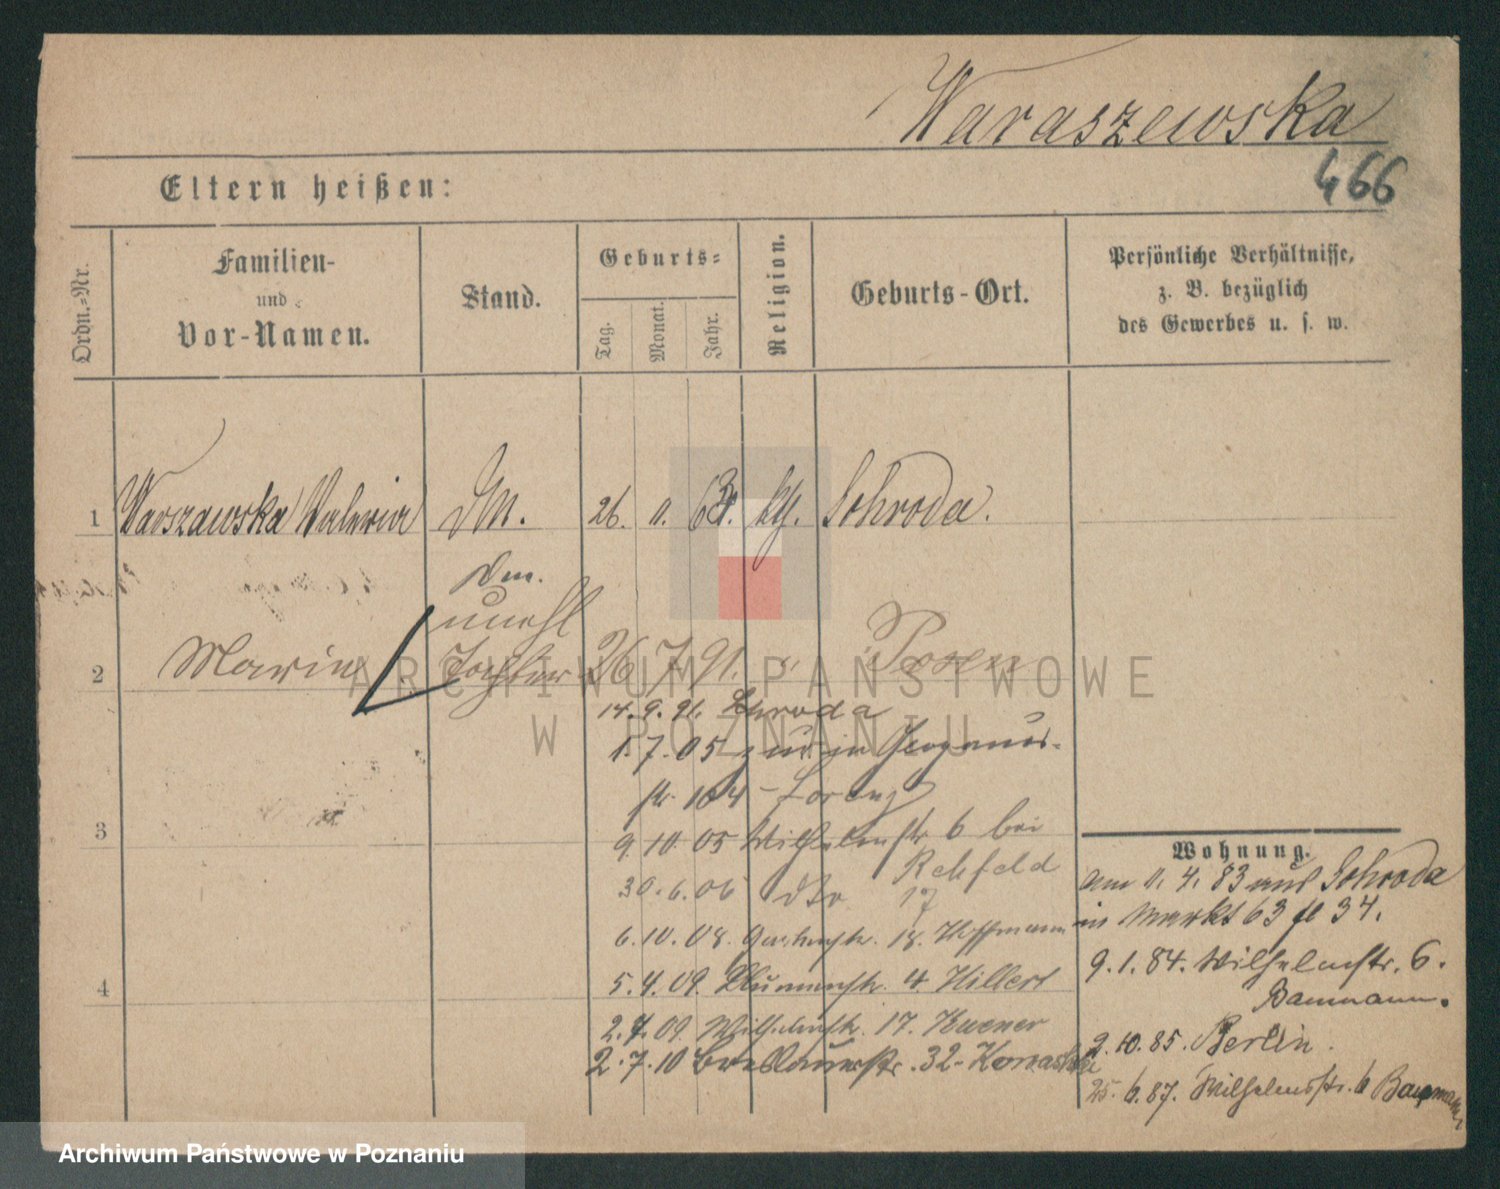 Waraszewska
466
Eltern heißen:
Ordn.=Nr.
Familien-
und
Vor-Namen.
Stand.
Geburts=
Tag.
Monat.
Jahr.
Religion.
Geburts-Ort.
Persönliche Verhältnisse,
z. B. bezüglich
des Gewerbes u. s. w.
1 Warszawska Valeria DM. 26. 11. 63. kth. Schroda.
Dm.
unehl
2 Marie Tochter 26 7 91. " Posen
14. 9. 91. Schroda
1. 7. 05 zur. in
str. 104 - Lorenz
3
9. 10. 05 Wilhelmstr. 6 bei
Rehfeld
30. 6. 06 dto 17
6. 10. 08. Gartenstr. 18. Hoffmann
4
5. 4. 09. Blumenstr. 4. Hillert
2. 7. 09 Wilhelmstr. 17.
2. 7. 10 Breslauerstr. 32-
Wohnung.
am 11. 4. 83 aus Schroda
in Markt 63 fl 34.
9. 1. 84. Wilhelmstr. 6.
Baumann.
2. 10. 85. Berlin.
25. 6. 87. Wilhelmsstr. 6 Baumann
ARCHIWUM PAŃSTWOWE
W POZNANIU
Archiwum Państwowe w Poznaniu